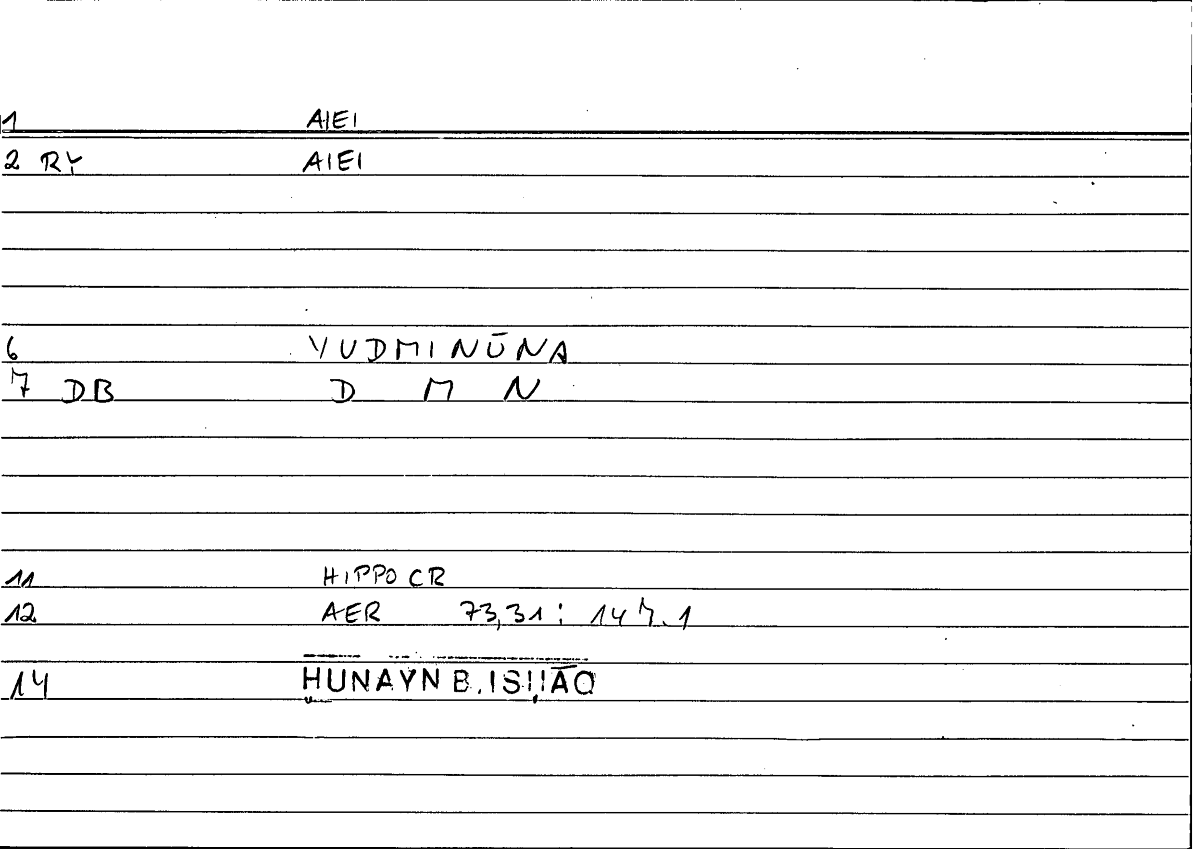 1 AIEI
2 RY AIEI
6 YUDMINŪNA
7 DB D M N
11 HIPPOCR
12 AER 73,31; 147.1
14 ḤUNAYN B. ISḤĀQ